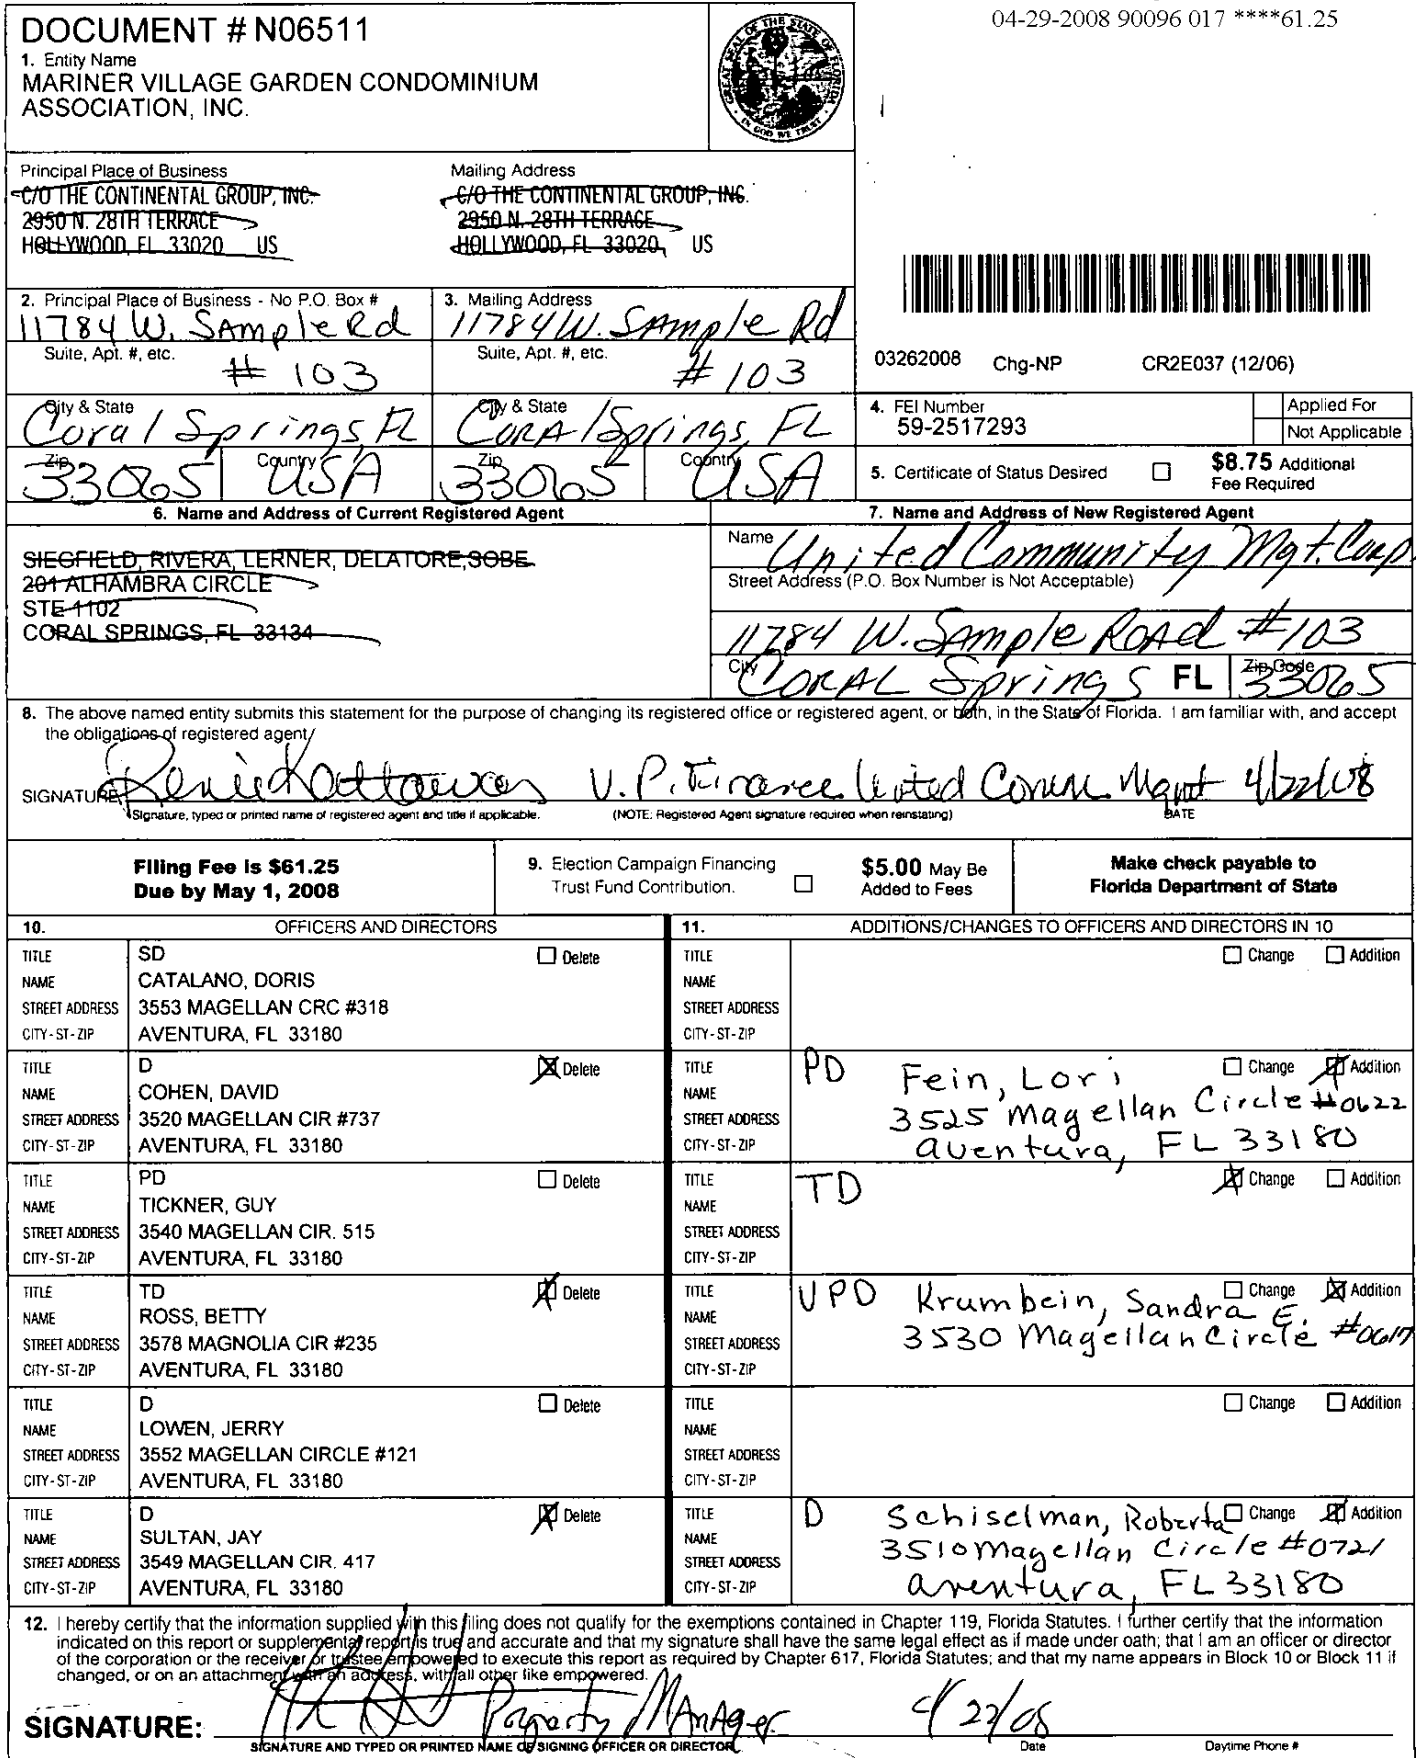 04-29-2008 90096 017 ****61.25
DOCUMENT # N06511
1. Entity Name
MARINER VILLAGE GARDEN CONDOMINIUM
ASSOCIATION, INC.
GREAT SEAL OF THE STATE OF FLORIDA
IN GOD WE TRUST
Principal Place of Business
C/O THE CONTINENTAL GROUP, INC.
2950 N. 28TH TERRACE
HOLLYWOOD, FL 33020 US
Mailing Address
C/O THE CONTINENTAL GROUP, INC.
2950 N. 28TH TERRACE
HOLLYWOOD, FL 33020, US
2. Principal Place of Business - No P.O. Box #
11784 W. Sample Rd
Suite, Apt. #, etc.
# 103
City & State
Coral Springs, FL
Zip
33065
Country
USA
3. Mailing Address
11784 W. Sample Rd
Suite, Apt. #, etc.
# 103
City & State
Coral Springs, FL
Zip
33065
Country
USA
03262008 Chg-NP CR2E037 (12/06)
4. FEI Number
59-2517293
Applied For
Not Applicable
5. Certificate of Status Desired
$8.75 Additional
Fee Required
6. Name and Address of Current Registered Agent
SIEGFIELD, RIVERA, LERNER, DELATORE, SOBE
201 ALHAMBRA CIRCLE
STE 1102
CORAL SPRINGS, FL 33134
7. Name and Address of New Registered Agent
Name
United Community Mgt. Corp
Street Address (P.O. Box Number is Not Acceptable)
11784 W. Sample Road #103
City
Coral Springs FL
Zip Code
33065
8. The above named entity submits this statement for the purpose of changing its registered office or registered agent, or both, in the State of Florida. I am familiar with, and accept
the obligations of registered agent.
SIGNATURE V.P. Finance United Comm Mgmt 4/22/08
Signature, typed or printed name of registered agent and title if applicable. (NOTE: Registered Agent signature required when reinstating) DATE
Filing Fee is $61.25
Due by May 1, 2008
9. Election Campaign Financing
Trust Fund Contribution.
$5.00 May Be
Added to Fees
Make check payable to
Florida Department of State
10. OFFICERS AND DIRECTORS
11. ADDITIONS/CHANGES TO OFFICERS AND DIRECTORS IN 10
TITLE SD Delete
NAME CATALANO, DORIS
STREET ADDRESS 3553 MAGELLAN CRC #318
CITY-ST-ZIP AVENTURA, FL 33180
TITLE Change Addition
NAME
STREET ADDRESS
CITY-ST-ZIP
TITLE D Delete
NAME COHEN, DAVID
STREET ADDRESS 3520 MAGELLAN CIR #737
CITY-ST-ZIP AVENTURA, FL 33180
TITLE PD Change Addition
NAME Fein, Lori
STREET ADDRESS 3525 Magellan Circle #0622
CITY-ST-ZIP Aventura, FL 33180
TITLE PD Delete
NAME TICKNER, GUY
STREET ADDRESS 3540 MAGELLAN CIR. 515
CITY-ST-ZIP AVENTURA, FL 33180
TITLE TD Change Addition
NAME
STREET ADDRESS
CITY-ST-ZIP
TITLE TD Delete
NAME ROSS, BETTY
STREET ADDRESS 3578 MAGNOLIA CIR #235
CITY-ST-ZIP AVENTURA, FL 33180
TITLE VPD Change Addition
NAME Krumbein, Sandra E.
STREET ADDRESS 3530 Magellan Circle #0617
CITY-ST-ZIP
TITLE D Delete
NAME LOWEN, JERRY
STREET ADDRESS 3552 MAGELLAN CIRCLE #121
CITY-ST-ZIP AVENTURA, FL 33180
TITLE Change Addition
NAME
STREET ADDRESS
CITY-ST-ZIP
TITLE D Delete
NAME SULTAN, JAY
STREET ADDRESS 3549 MAGELLAN CIR. 417
CITY-ST-ZIP AVENTURA, FL 33180
TITLE D Change Addition
NAME Schiselman, Roberta
STREET ADDRESS 3510 Magellan Circle #0721
CITY-ST-ZIP Aventura, FL 33180
12. I hereby certify that the information supplied with this filing does not qualify for the exemptions contained in Chapter 119, Florida Statutes. I further certify that the information
indicated on this report or supplemental report is true and accurate and that my signature shall have the same legal effect as if made under oath; that I am an officer or director
of the corporation or the receiver or trustee empowered to execute this report as required by Chapter 617, Florida Statutes; and that my name appears in Block 10 or Block 11 if
changed, or on an attachment with an address, with all other like empowered.
SIGNATURE: Property Manager 4/22/08
SIGNATURE AND TYPED OR PRINTED NAME OF SIGNING OFFICER OR DIRECTOR Date Daytime Phone #